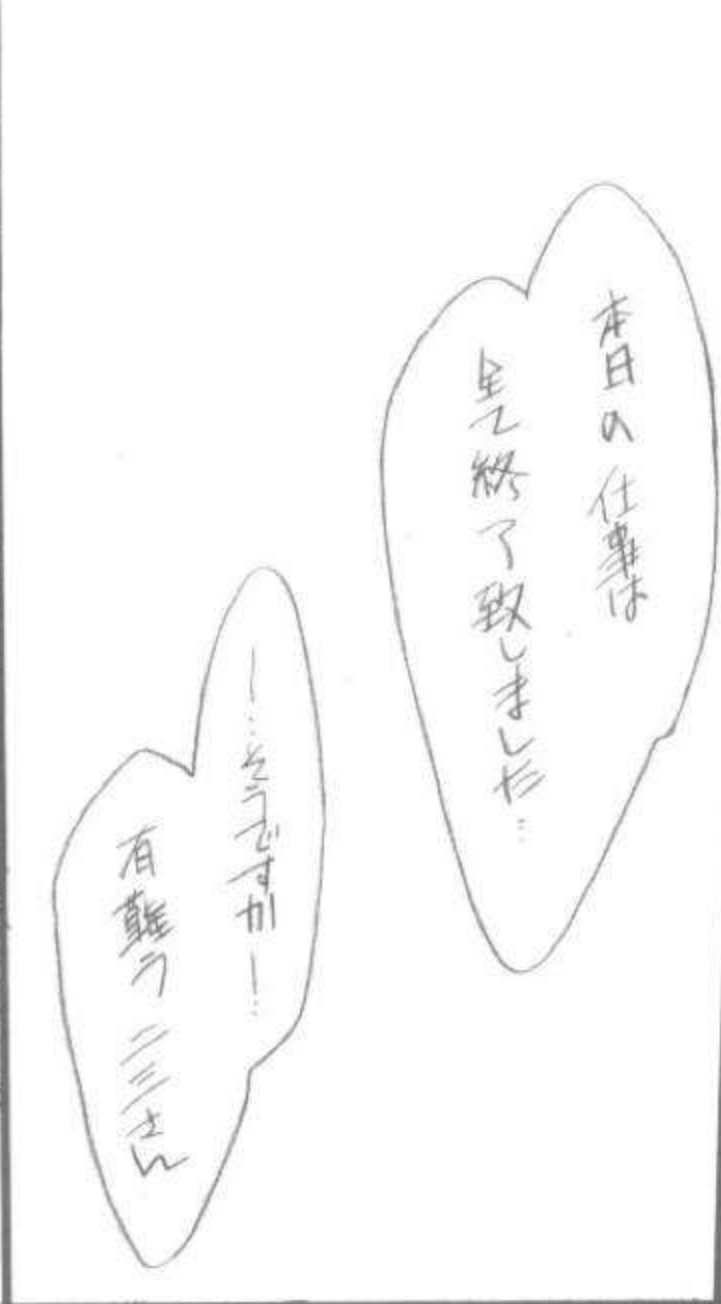 本日の仕事は
全て終了致しました…
―…そうですか―…
有難う二三さん